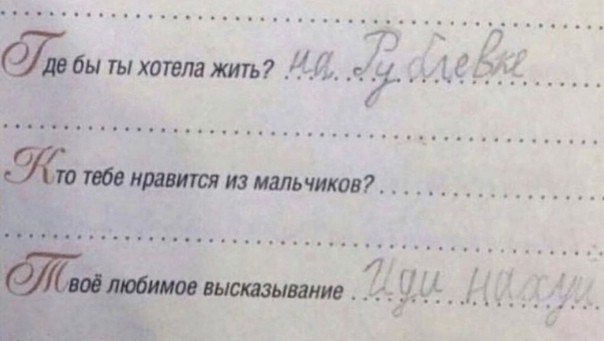 Где бы ты хотела жить? на Рублевке
Кто тебе нравится из мальчиков?
Твоё любимое высказывание Иди нахуй